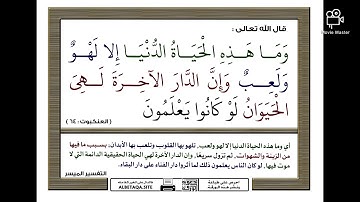 قال الله تعالى :
وَمَا هَذِهِ الْحَيَاةُ الدُّنْيَا إِلا لَهْوٌ
وَلَعِبٌ وَإِنَّ الدَّارَ الآخِرَةَ لَهِيَ
الْحَيَوَانُ لَوْ كَانُوا يَعْلَمُونَ
[العنكبوت : ٦٤]
أي وما هذه الحياة الدنيا إلا لهو ولعب، تلهو بها القلوب وتلعب بها الأبدان، بسبب ما فيها
من الزينة والشهوات، ثم تزول سريعًا، وإن الدار الآخرة لهي الحياة الحقيقية الدائمة التي لا
موت فيها، لو كان الناس يعلمون ذلك لما آثروا دار الفناء على دار البقاء.
التفسير الميسر
ALBETAQA.SITE
Movie Master